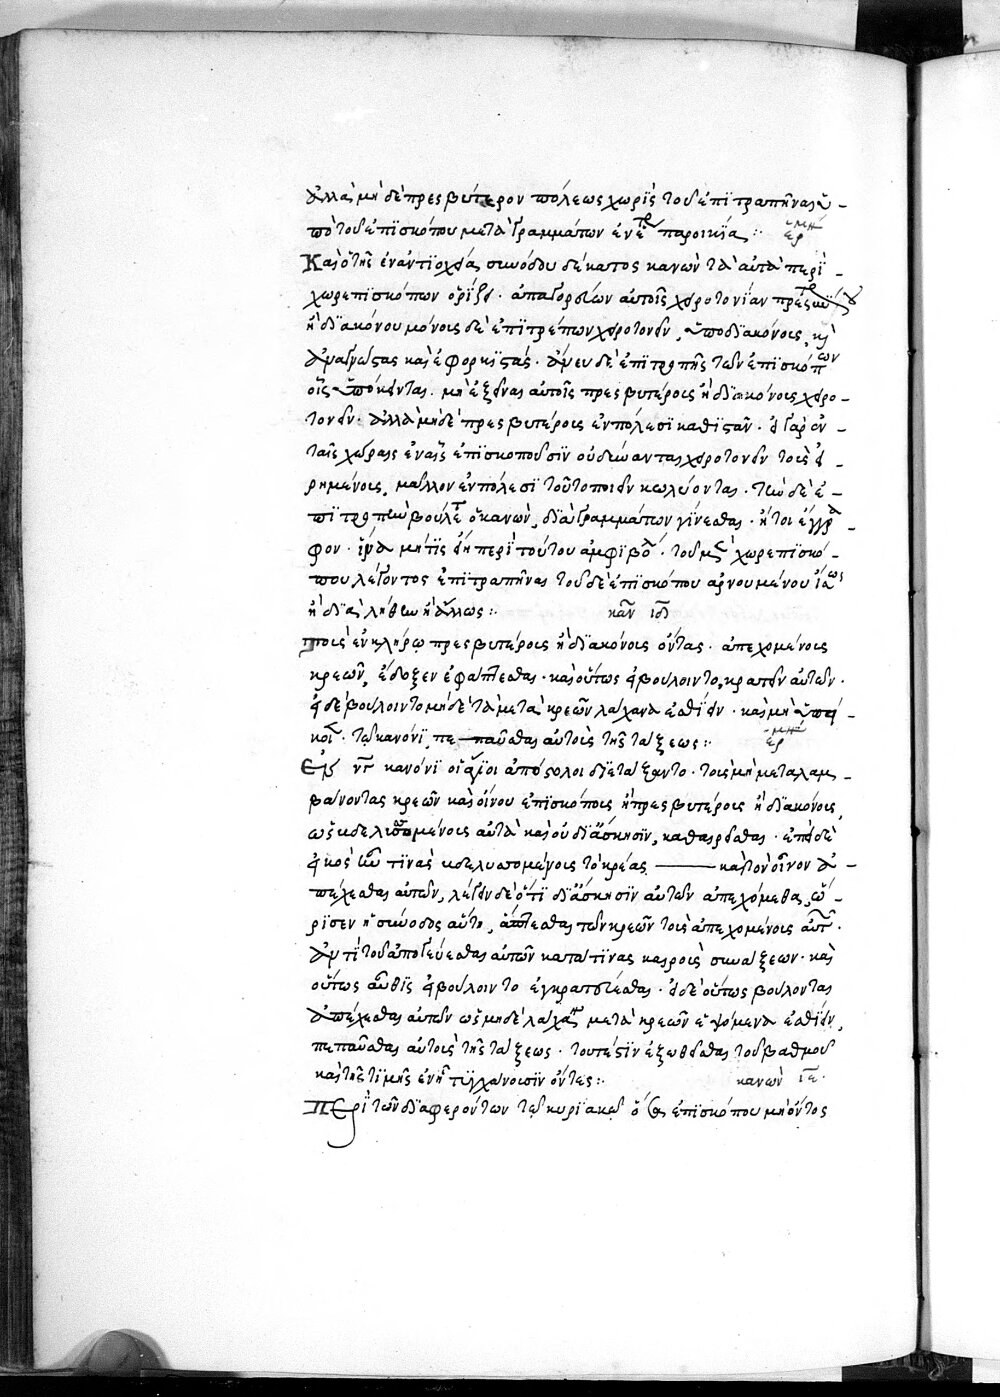 ἀλλὰ μὴ δὲ πρεσβύτερον πόλεως χωρὶς τοῦ ἐπιτραπῆναι ὑ-
πὸ τοῦ ἐπισκόπου μετὰ γραμμάτων ἐν ἑτ παροικία :· ἑρμή
Καὶ ὁ τῆς ἐν ἀντιοχεία συνόδου δέκατος κανὼν τὰ αὐτὰ περὶ
χωρεπισκόπων ὁρίζει · ἀπαγορεύων αὐτοῖς χειροτονίαν
ἢ διακόνου μόνοις δὲ ἐπιτρέπων χειροτονεῖν, ὑποδιακόνοις, καὶ
ἀναγνώστας καὶ ἐφορκιστάς · ἄνευ δὲ ἐπιτροπῆς τῶν ἐπισκόπων
οἷς ὑπόκεινται · μὴ ἐξεῖναι αὐτοῖς πρεσβυτέροις ἢ διακόνοις χειρο-
τονεῖν · ἀλλὰ μὴ δὲ πρεσβυτέροις ἐν πόλεσι καθιστᾶν · εἰ γὰρ ἐν
ταῖς χώραις ἐν αἷς ἐπισκοποῦσιν οὐ δύνανται χειροτονεῖν τοὺς εἰ-
ρημένοις, μᾶλλον ἐν πόλεσι τοῦτο ποιεῖν κωλύονται · τὴν δὲ ἐ-
πιτροπὴν βούλεται ὁ κανὼν, διὰ γραμμάτων γίνεσθαι · ἤτοι ἔγγρα-
φον · ἵνα μή τις εἴη περὶ τούτου ἀμφιβο · τοῦ μὲν χωρεπισκό-
που λέγοντος ἐπιτραπῆναι τοῦ δὲ ἐπισκόπου ἀρνουμένου ἴσως
ἢ διὰ λήθην ἢ ἄλλως :· καν ιδ
τοὺς ἐν κλήρω πρεσβυτέροις ἢ διακόνοις ὄντας · ἀπεχομένοις
κρεῶν, ἔδοξεν ἐφάπτεσθαι · καὶ οὕτως εἰ βούλοιντο, κρατεῖν αὐτῶν ·
εἰ δὲ βούλοιντο μὴ δὲ τὰ μετὰ κρεῶν λάχανα ἐσθίειν · καὶ μὴ ὑπεί-
κοι · τῷ κανόνι, πε— παῦσθαι αὐτοὺς τῆς τάξεως :· ἑρμή
Ἐν νγ κανόνι οἱ ἅγιοι ἀπόστολοι διετάξαντο · τοὺς μὴ μεταλαμ-
βάνοντας κρεῶν καὶ οἴνου ἐπισκόποις ἢ πρεσβυτέροις ἢ διακόνοις,
ὡς βδελυσσομένοις αὐτὰ καὶ οὐ δι ἄσκησιν, καθαιρεῖσθαι · ἐπεὶ δὲ
εἰκὸς ἦν τινὰς βδελυσσομένοις τὸ κρέας —— καὶ τὸν οἶνον ἀ-
πέχεσθαι αὐτῶν, λέγειν δὲ ὅτι δι ἄσκησιν αὐτῶν ἀπεχόμεθα, ὥ-
ρισεν ἡ σύνοδος αὕτη, ἅπτεσθαι τῶν κρεῶν τοὺς ἀπεχομένοις αὐτ ·
ἀντὶ τοῦ ἀπογεύεσθαι αὐτῶν κατά τινας καιροὺς συνάξεων · καὶ
οὕτως αὖθις εἰ βούλοιντο ἐγκρατεύεσθαι · εἰ δὲ οὕτως βούλονται
ἀπέχεσθαι αὐτῶν ὡς μὴ δὲ λάχανα μετὰ κρεῶν ἑψόμενα ἐσθίειν,
πεπαῦσθαι αὐτοὺς τῆς τάξεως · τουτέστιν ἐξωθεῖσθαι τοῦ βαθμοῦ
καὶ τῆς τιμῆς ἐν ᾗ τυγχάνουσιν ὄντες :· κανὼν ιε ·
Περὶ τῶν διαφερόντων τῷ κυριακῷ ὅσα ἐπισκόπου μὴ ὄντος